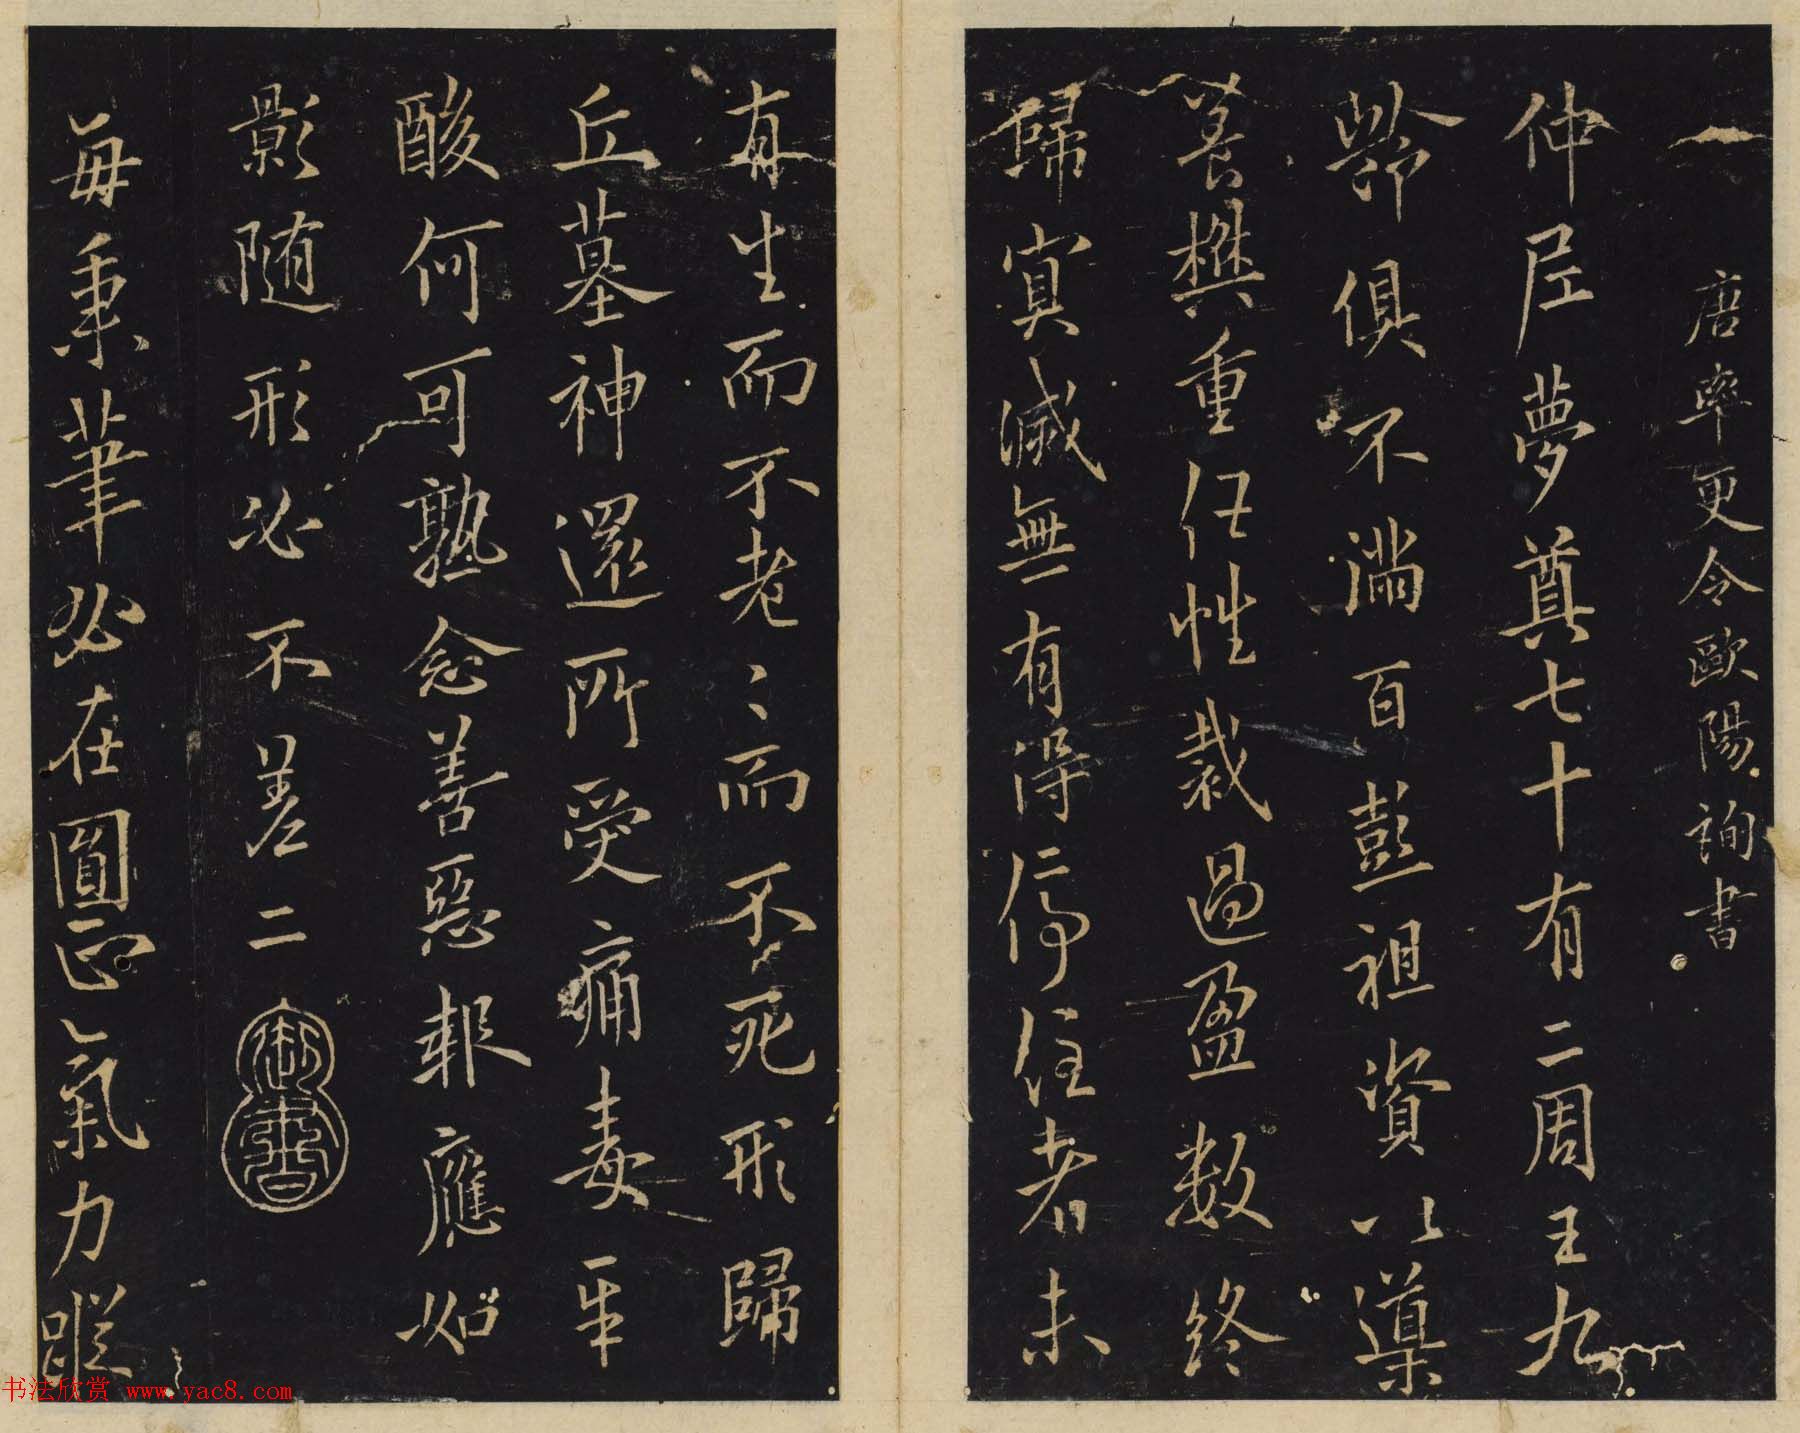 唐率更令歐陽詢書
仲尼夢奠七十有二周王九
齡俱不滿百彭祖資以導
養樵重任性裁過盈數終
歸寘滅無有得停住者未
有生而不老〻而不死形歸
丘墓神還所受痛毒辛
酸何可熟念善惡報應如
影隨形必不差二
御書
每秉筆必在圓正氣力蹤
书法欣赏 www.yac8.com